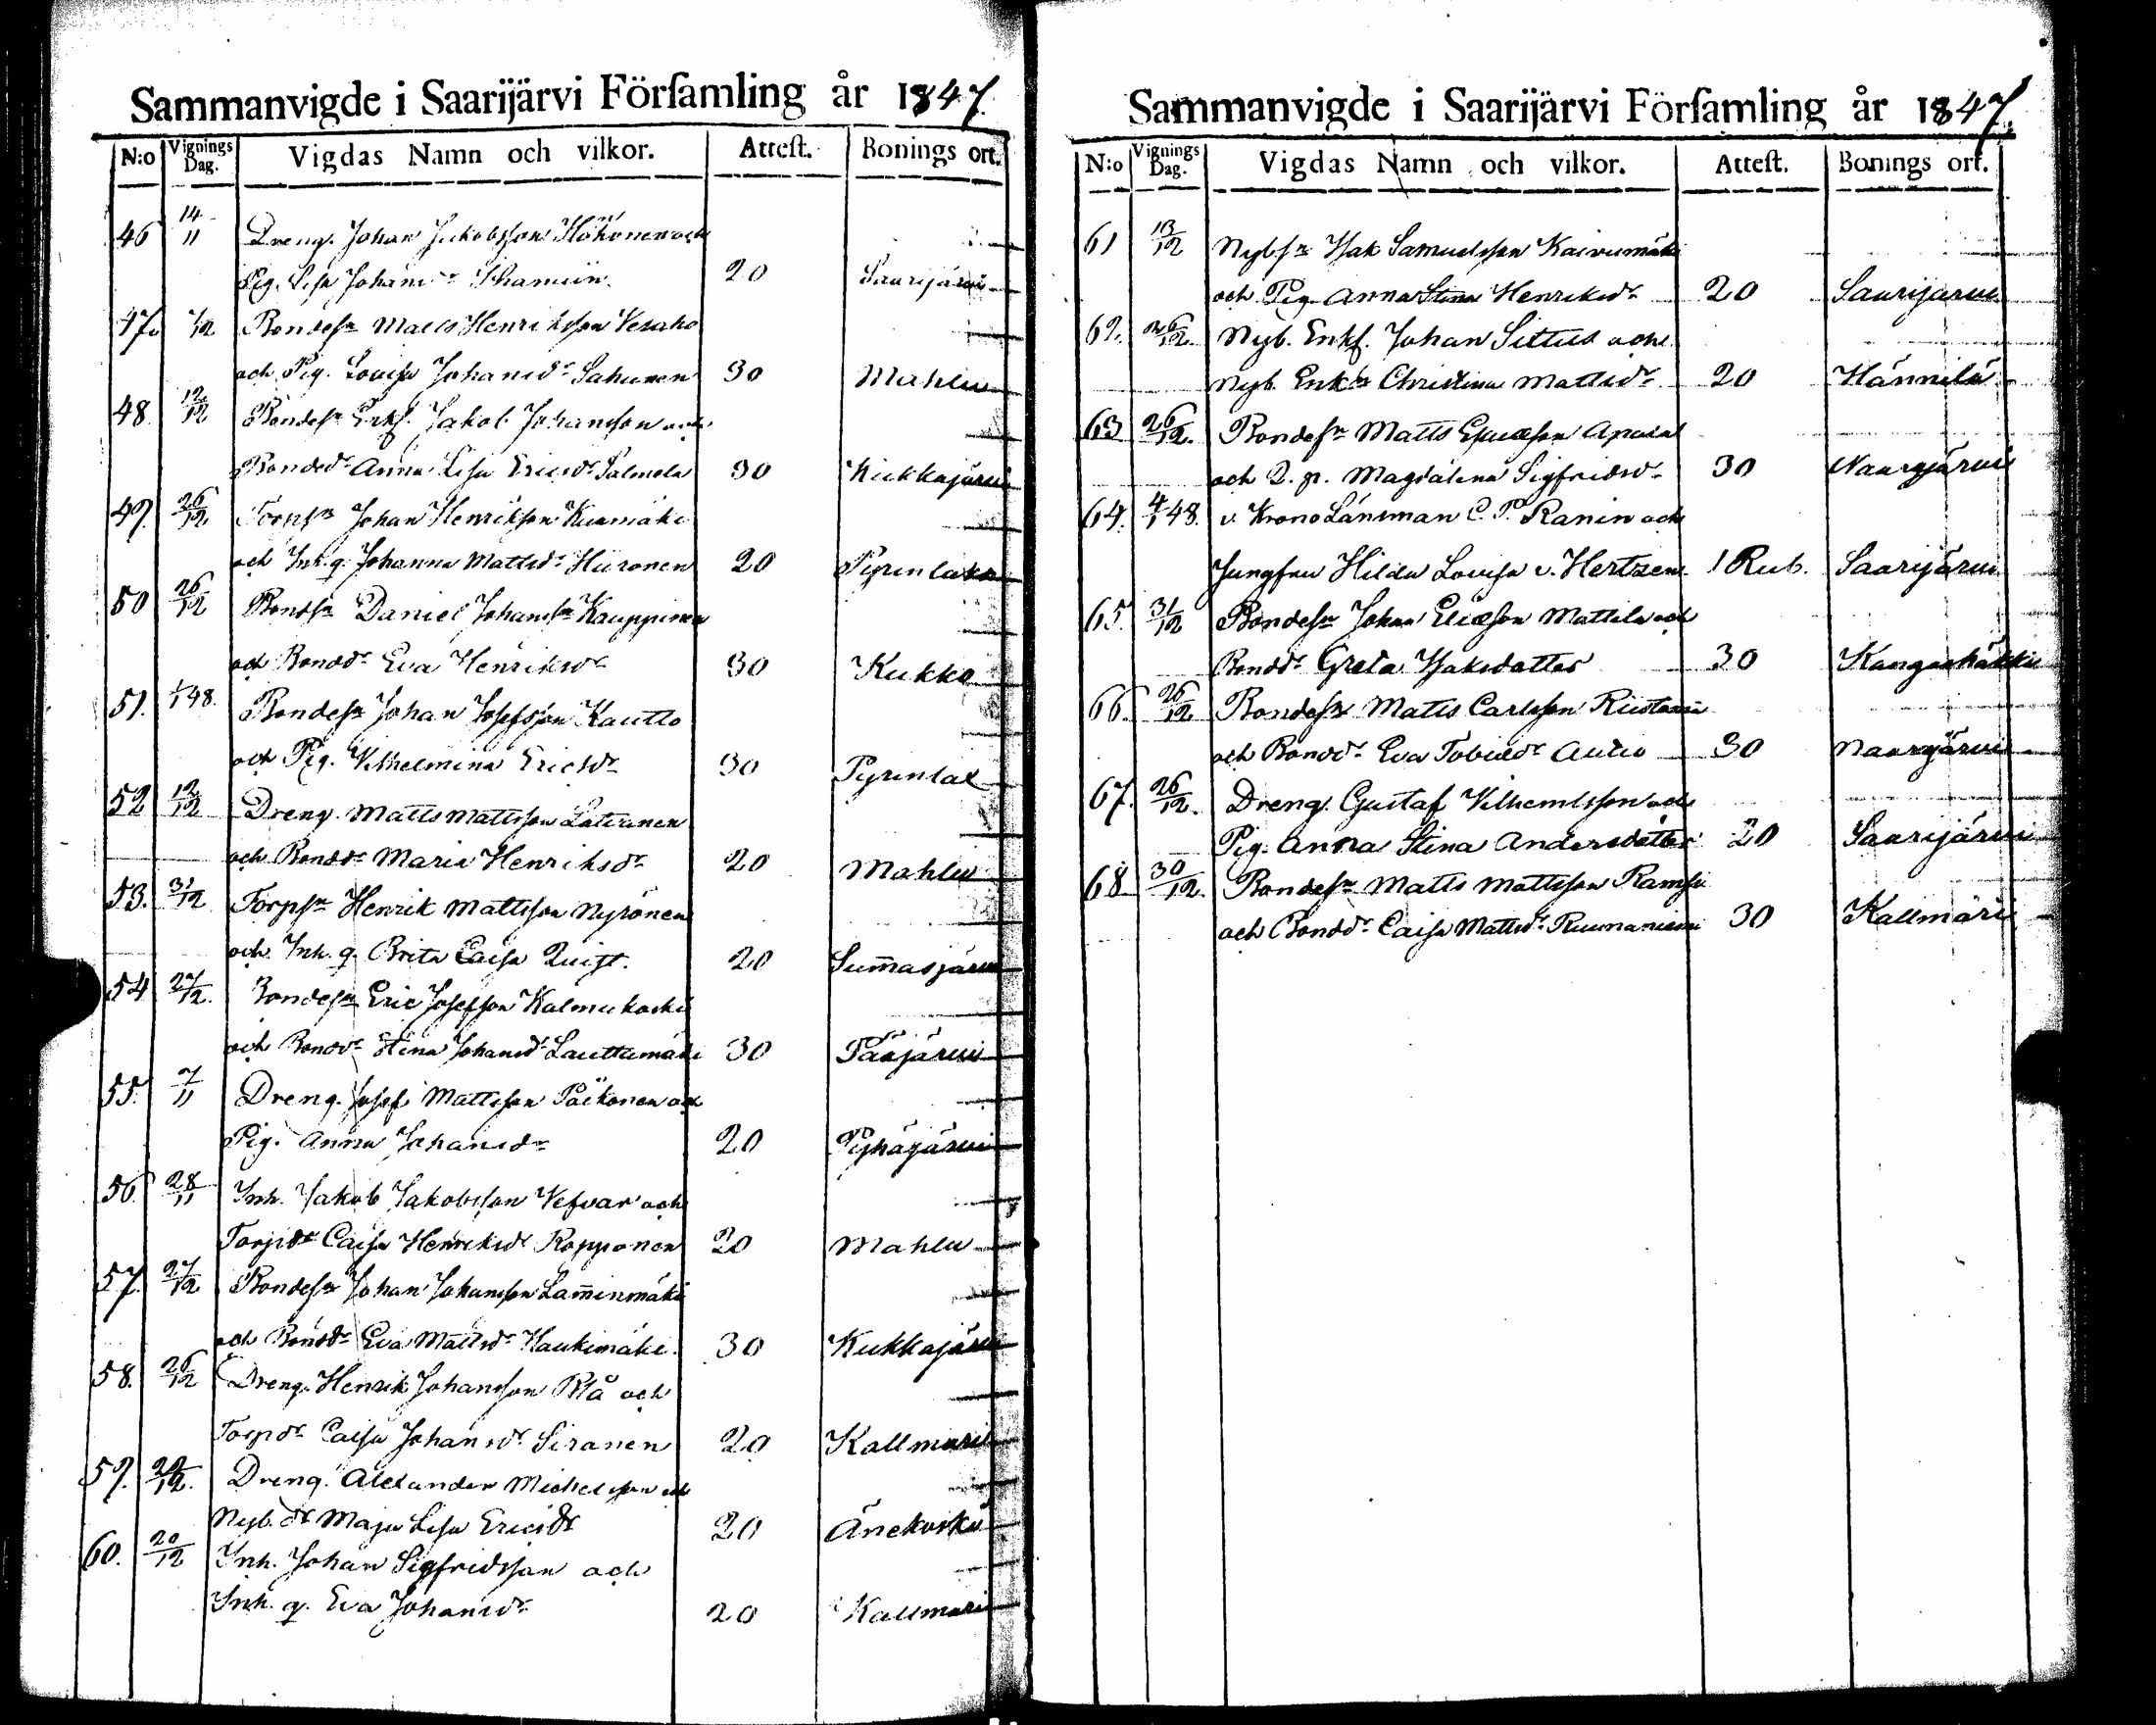 Sammanvigde i Saarijärvi Församling år 1847.
N:o Vignings Dag. Vigdas Namn och vilkor. Attest. Bonings ort.
46 14/11 Dreng. Johan Jakobsson Hökönen och
Pig. Lisa Johansdr 20 Saarijärvi
47. 7/12 Bondesn Matts Henriksson Vesaho
och Pig. Lovisa Johansdr Sahunen 30 Mahlu
48 12/12 Bondesn Enkl. Jakob Johansson och
Bondedr Anna Lisa Ericsdr Salmela 30 Kukkajärvi
49. 26/12 Torpsn Johan Henriksson Kusmäki
och Inh. q. Johanna Mattsdr Hiironen 20 Pyrinlaks
50 26/12 Bondsn Daniel Johanssn Kauppinen
och Bondr Eva Henriksdr 30 Kukko
51. 1/1 48. Bondesn Johan Josefsson Kautto
och Pig. Vilhelmina Ericsdr 30 Pyrinlax
52 12/12 Dreng. Matts Mattsson
och Bonddr Maria Henriksdr 20 Mahlu
53. 31/12 Torpsn Henrik Mattsson Nyrönen
och Inh. q. Brita Caisa Quist. 20 Sum̄asjärvi
54 27/12. Bondesn Eric Josefsson Kalmukoski
och Bondr Stina Johansdr Lauttamäki 30 Pääjärvi
55. 7/11 Dreng. Josef Mattsson Päikonen och
Pig. Anna Johansdr 20 Pyhäjärvi
56. 28/11 Inh. Jakob Jakobsson Vefvar och
Torpdr Caisa Henriksdr Ropponen 20 Mahlu
57. 27/12 Bondesn Johan Johansson Lam̄inmäki
och Bonddr Eva Mattsdr Haukimäki. 30 Kukkajärvi
58. 26/12 Dreng. Henrik Johansson Blå och
Torpdr Caisa Johansdr Siranen 20 Kallmari
59. /12. Dreng. Alexander Michelsson och
Nyb. dr Maja Lisa Ericsdr 20 Änekoski
60. 20/12 Inh. Johan Sigfridsson och
Inh. q. Eva Johansdr 20 Kallmari
Sammanvigde i Saarijärvi Församling år 1847.
N:o Vignings Dag. Vigdas Namn och vilkor. Attest. Bonings ort.
61 13/12 Nybsn Isak Samuelsson Kaivumäki
och Pig. Anna Stina Henriksdr 20 Saarijärvi
62. 26/12. Nyb. Enkl. Johan Sittus och
Nyb. Enka Christina Mattsdr 20 Hännilä
63 26/12. Bondesn Matts Esaiæson
och Q. p. Magdalena Sigfridsdr 30 Naarajärvi
64. 4/1 48. v. Krono Länsman C. P. Ranin och
Jungfru Hilda Lovisa v. Hertzen 1 Rub. Saarijärvi
65. 31/12 Bondesn Johan Eliæson Mattila och
Bondr Greta Isaksdotter 30 Kangashäkki
66. 26/12 Bondesn Matts Carlsson
och Bondr Eva Tobiædr Autio 30 Naarajärvi
67. 26/12. Dreng. Gustaf Vilhemlsson och
Pig. Anna Stina Andersdotter 20 Saarijärvi
68 30/12. Bondesn Matts Mattsson Ramsu
och Bonddr Caisa Mattsdr Ruunaniemi 30 Kallmäri